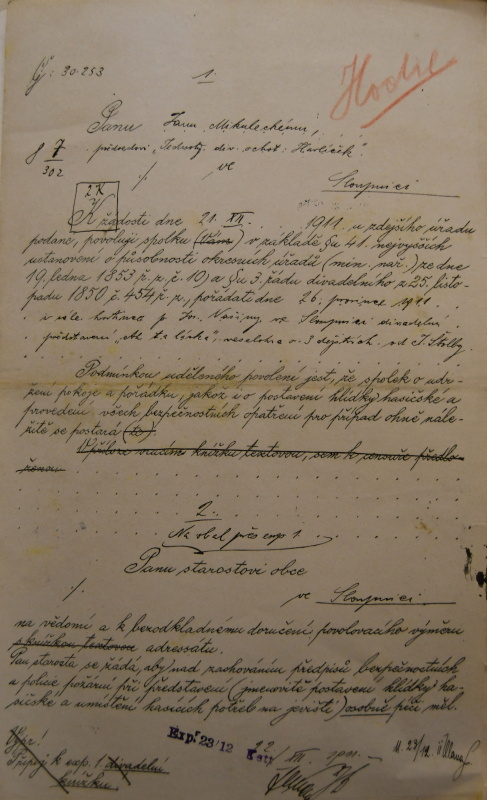 Čj: 30.253
1.
Hodie
Panu Janu Mikuleckému,
předsedovi „Jednoty div. ochot. Havlíček"
§ 7
302
·/. ve
Sloupnici
2 K
K žádosti dne 21. XII. 1911 u zdejšího úřadu
podané, povoluji spolku (Vám) v základě §u 41. nejvyšších
ustanovení o působnosti okresních úřadů (min. nař.) ze dne
19. ledna 1853 ř. z. č. 10) a §u 3. řádu divadelního z 25. listo-
padu 1850 č. 454 ř. z., pořádati dne 26. prosince 1911
v sále hostince p. v Sloupnici divadelní
představení „ veselohra o 3 dějstvích od J. Štolby.
Podmínkou uděleného povolení jest, že spolek o udr-
žení pokoje a pořádku, jakož i o postavení hlídky hasičské a
provedení všech bezpečnostních opatření pro případ ohně nále-
žitě se postará (te).
V příloze vracím knížku textovou, sem k censuře předlo-
ženou
2.
Na obál. přes exp. 1
Panu starostovi obce
·/. ve Sloupnici
na vědomí a k bezodkladnému doručení povolovacího výměru
s knížkou textovou adressátu.
Pan starosta se žádá, aby nad zachováním předpisů bezpečnostních
a policie požární při představení (jmenovitě postavení hlídky ha-
sičské a umístění hasicích potřeb na jevišti) osobně péči měl.
Exp. 23/12
22/XII. 1911
M. 23/12
Připoj k exp. 1 divadelní
knížku